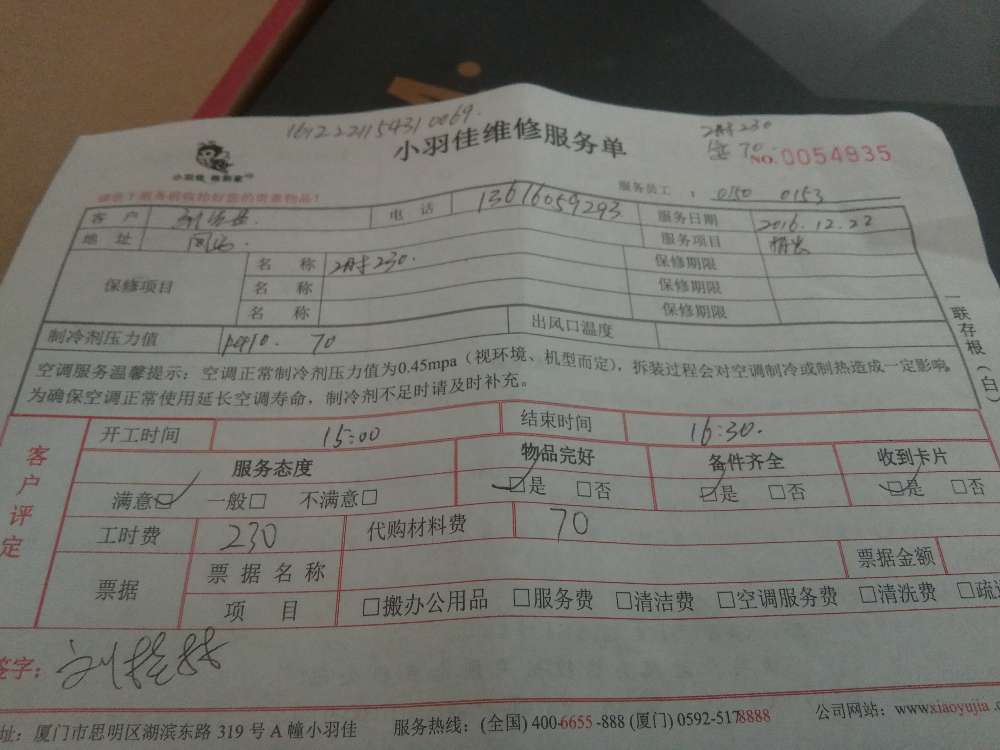 161222115431 0069
230
70
小羽佳维修服务单
NO.0054935
小羽佳
服务员工: 0150 0153
客户 电话 13616059293 服务日期 2016.12.22
地址 服务项目
保修项目 名称 230. 保修期限
名称 保修期限
名称 保修期限
制冷剂压力值 70 出风口温度
空调服务温馨提示:空调正常制冷剂压力值为0.45mpa(视环境、机型而定),拆装过程会对空调制冷或制热造成一定影响,
为确保空调正常使用延长空调寿命,制冷剂不足时请及时补充。
一联存根(白)
客户评定
开工时间 15:00 结束时间 16:30.
服务态度 物品完好 备件齐全 收到卡片
满意☑ 一般□ 不满意□ ☑是 □否 ☑是 □否 ☑是 □否
工时费 230 代购材料费 70
票据 票据名称 票据金额
项目 □搬办公用品 □服务费 □清洁费 □空调服务费 □清洗费 □疏
签字:
址:厦门市思明区湖滨东路 319 号 A 幢小羽佳 服务热线:(全国) 400-6655-888 (厦门) 0592-5178888 公司网站:www.xiaoyujia.